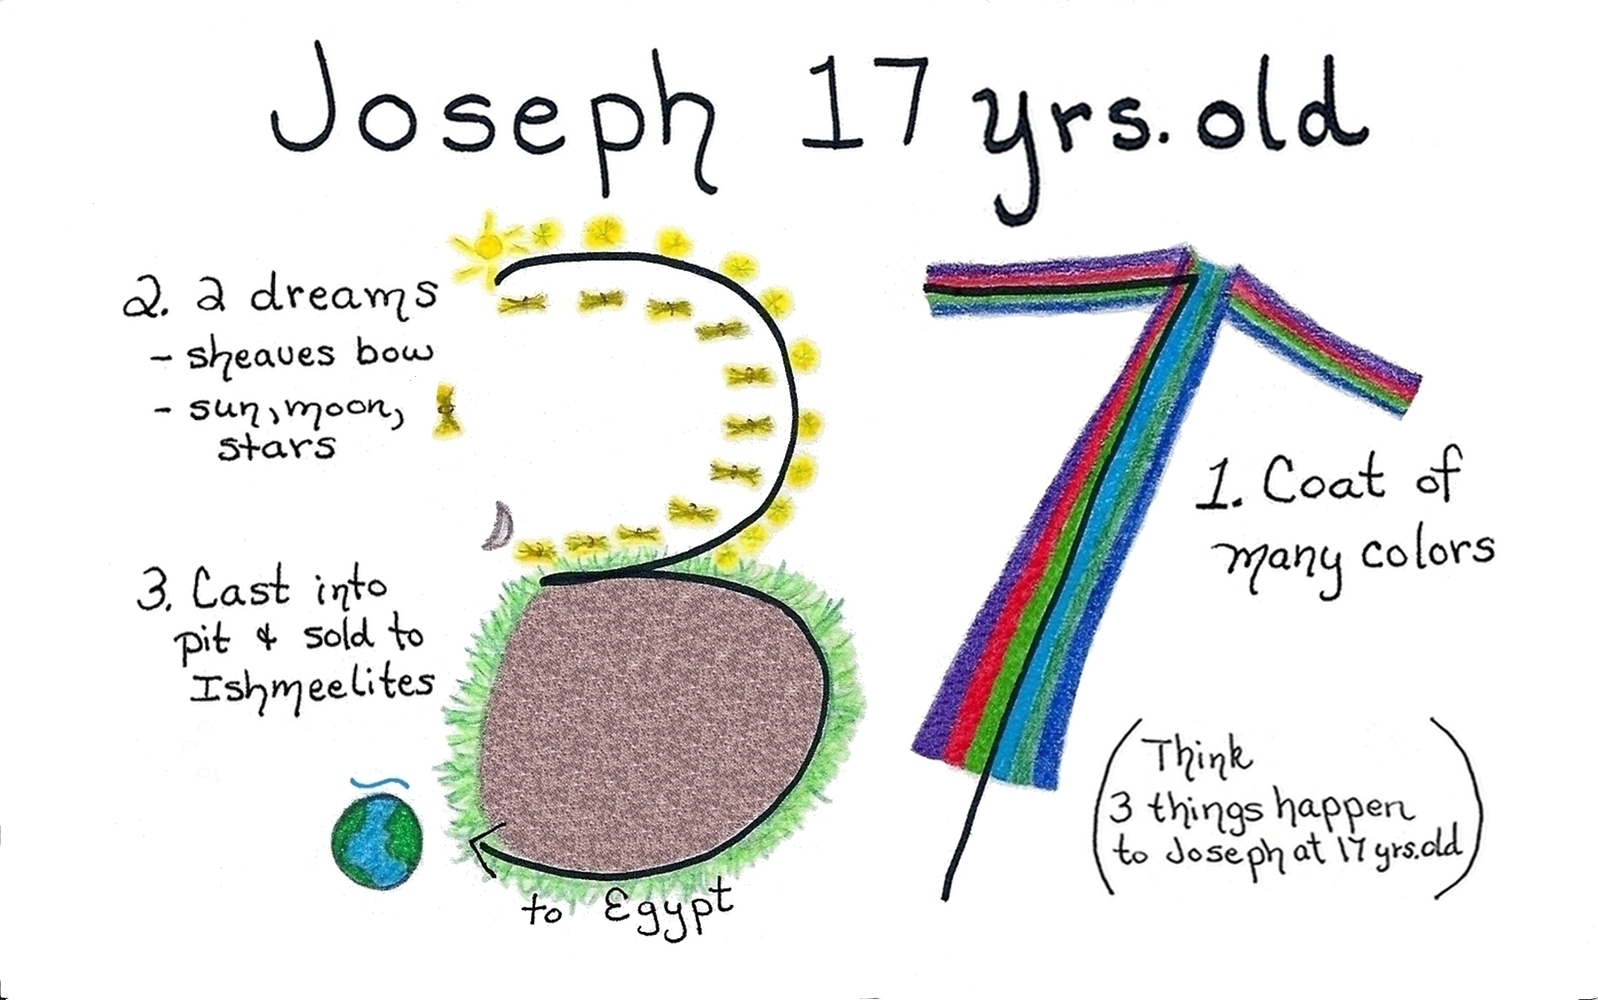 Joseph 17 yrs. old
2. 2 dreams
- sheaves bow
- sun, moon,
stars
3. Cast into
pit & sold to
Ishmeelites
to Egypt
1. Coat of
many colors
(Think
3 things happen
to Joseph at 17 yrs. old)
37